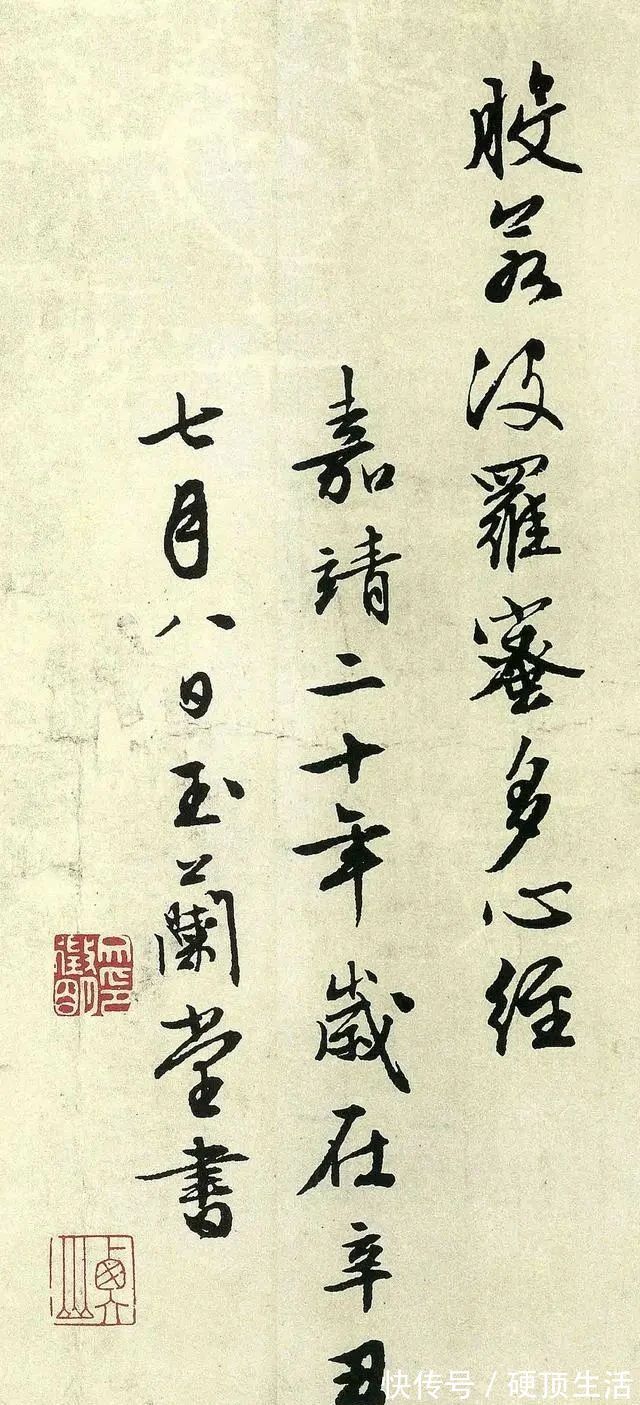 般若波羅蜜多心經
嘉靖二十年歲在辛丑
七月八日玉蘭堂書
徵明
快传号／硬顶生活